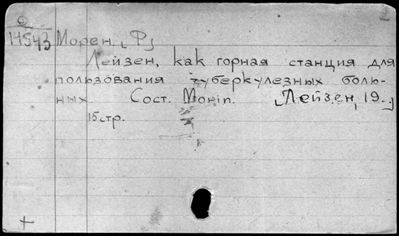 C
14543 Морен, Ф.
Лейзен, как горная станция для
пользования туберкулезных боль-
ных. Сост. Morin. Лейзен, 19.
15 стр.